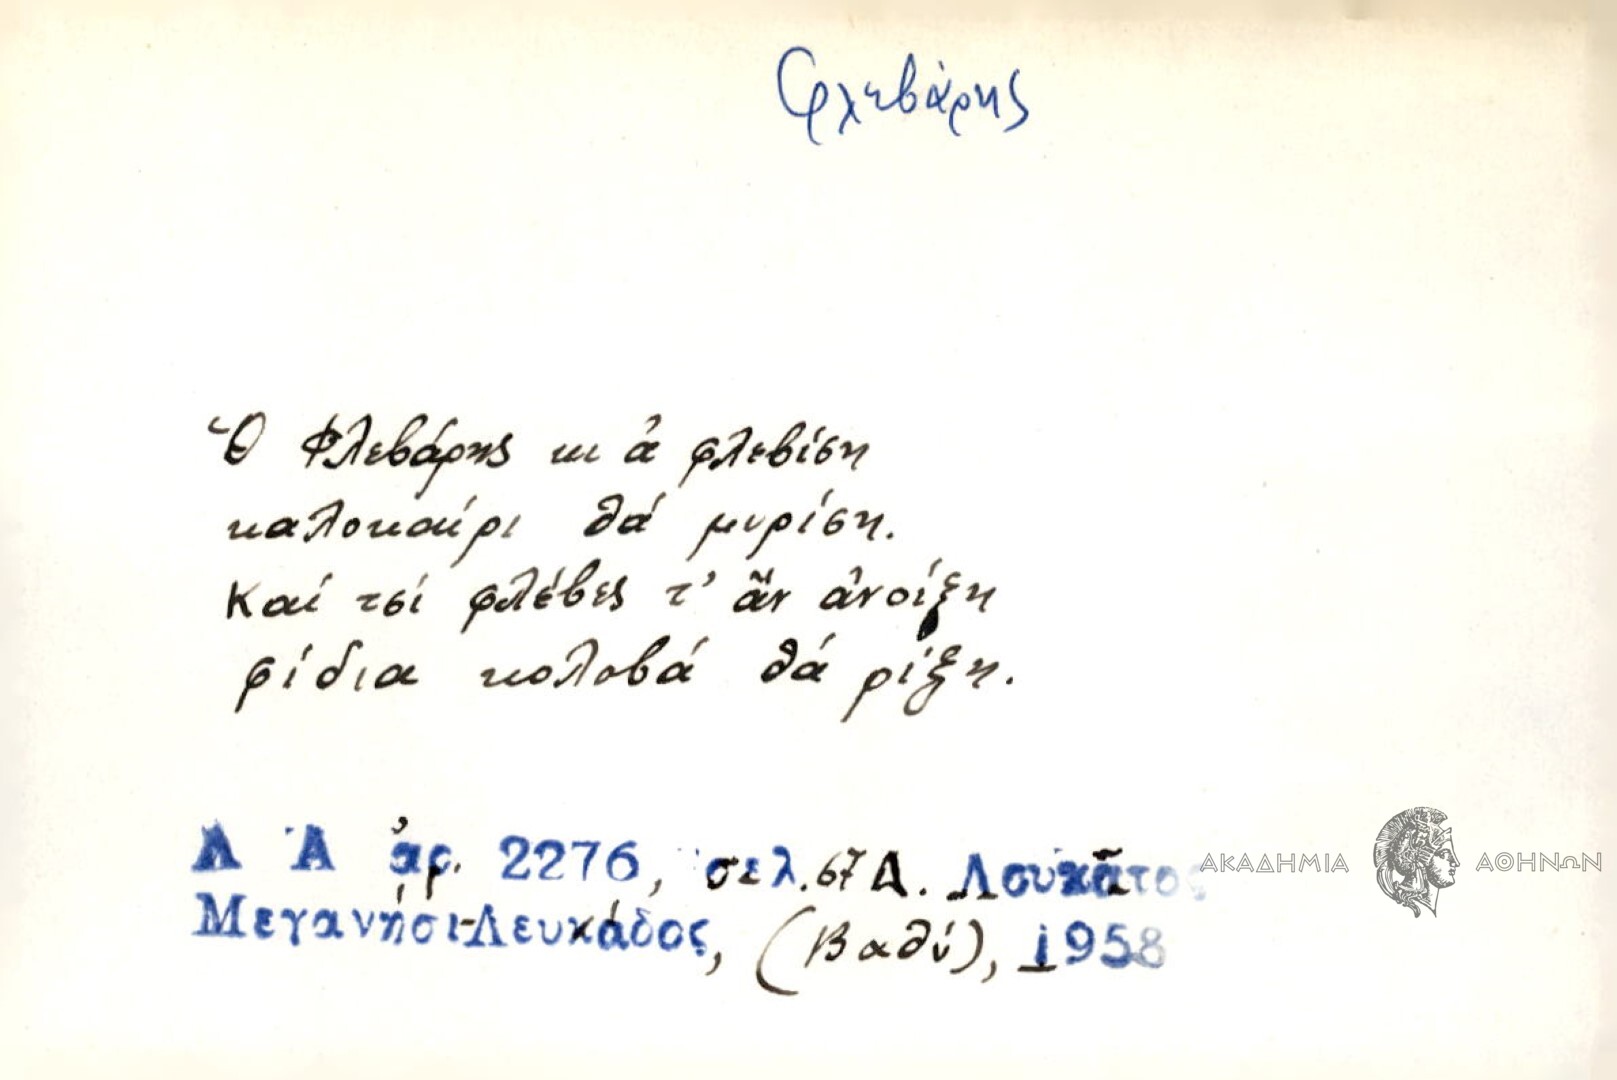 Φλεβάρης
Ὁ Φλεβάρης κι ἀ φλεβίση
καλοκαίρι θά μυρίση.
Καί τσί φλέβες τ' ἄν ἀνοίξη
φίδια κολοβά θά ρίξη.
Λ Ἀ ἀρ. 2276, σελ. 67 Δ. Λουκᾶτος
Μεγανήσι-Λευκάδος, (Βαθύ), 1958
ΑΚΑΔΗΜΙΑ ΑΘΗΝΩΝ